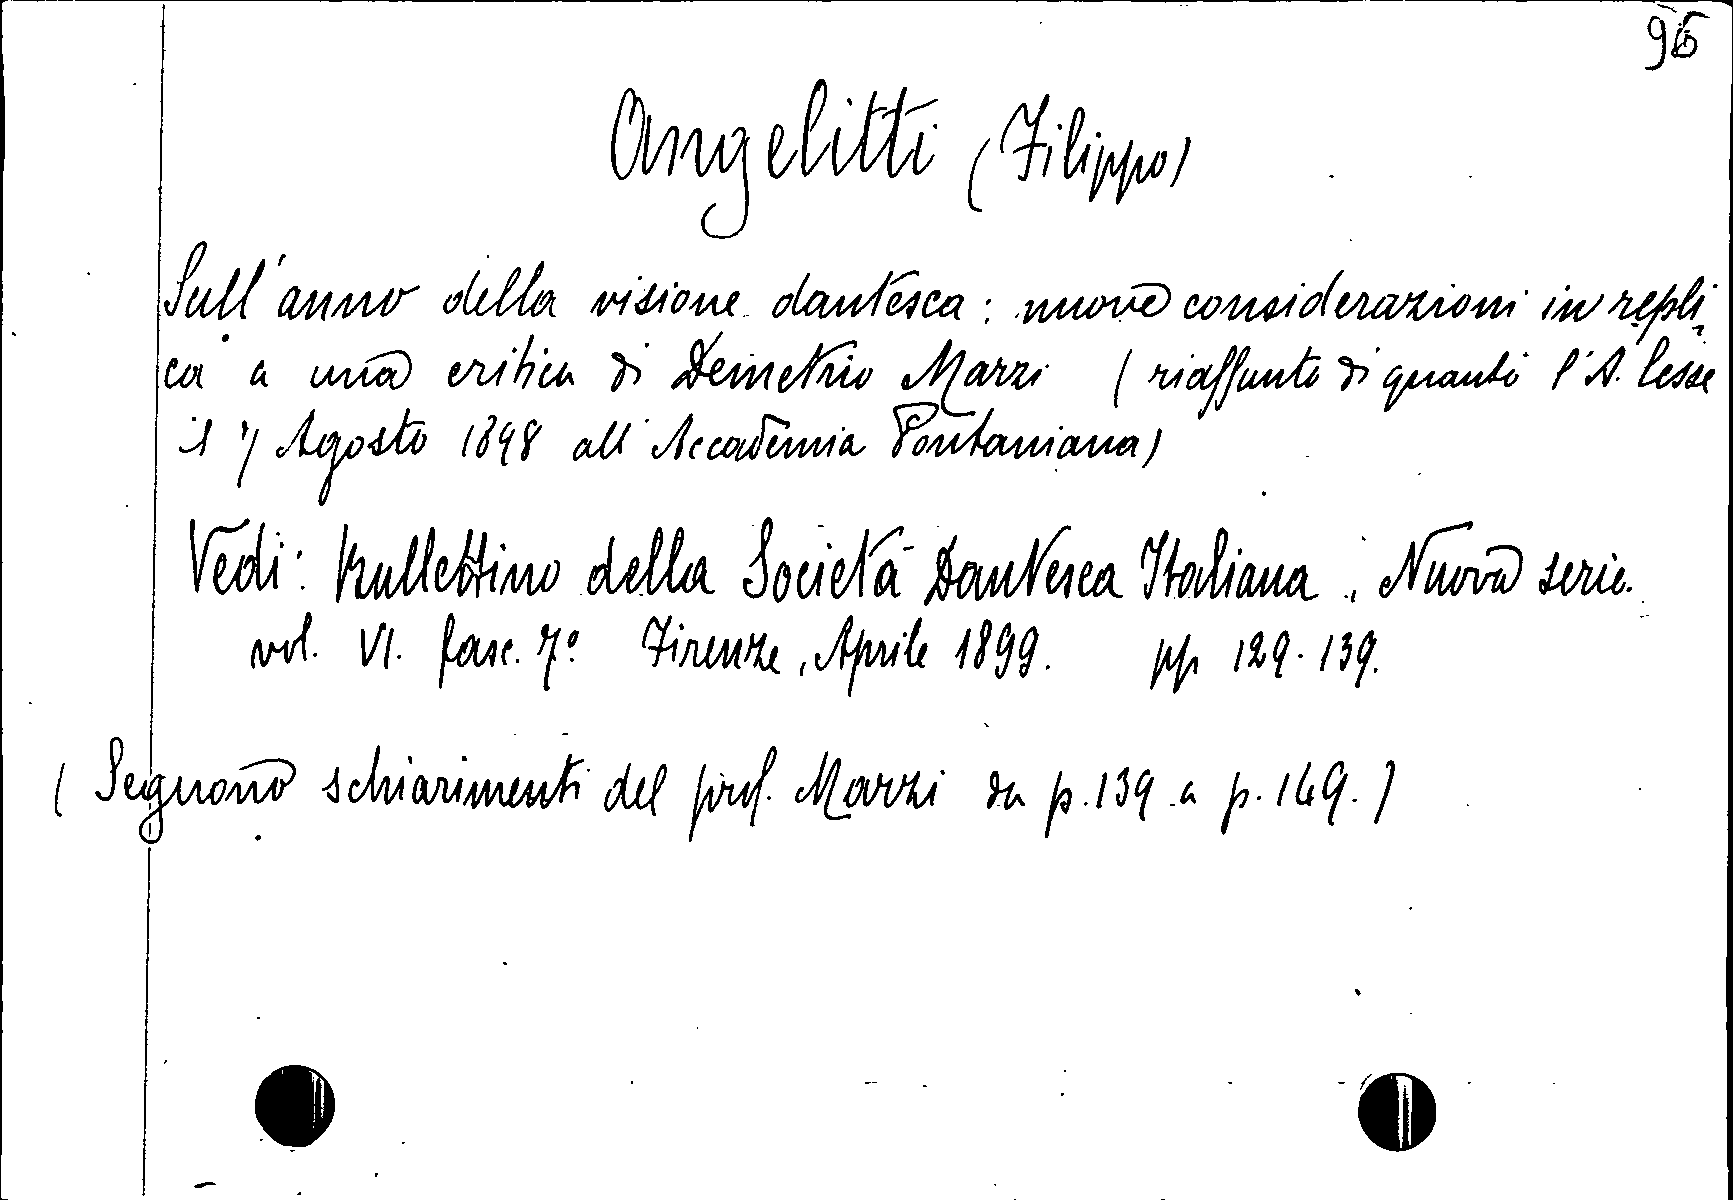 96
Angelitti (Filippo)
Sull'anno della visione dantesca: nuove considerazioni in repli-
ca a una critica di Demetrio Marzi (riassunto di quanto l'A. lesse
il 7 Agosto 1898 all'Accademia Pontaniana)
Vedi: Bullettino della Società Dantesca Italiana, Nuova serie.
vol. VI. fasc. 7º Firenze, Aprile 1899. pp 129-139.
(Seguono schiarimenti del prof. Marzi da p. 139 a p. 149.)